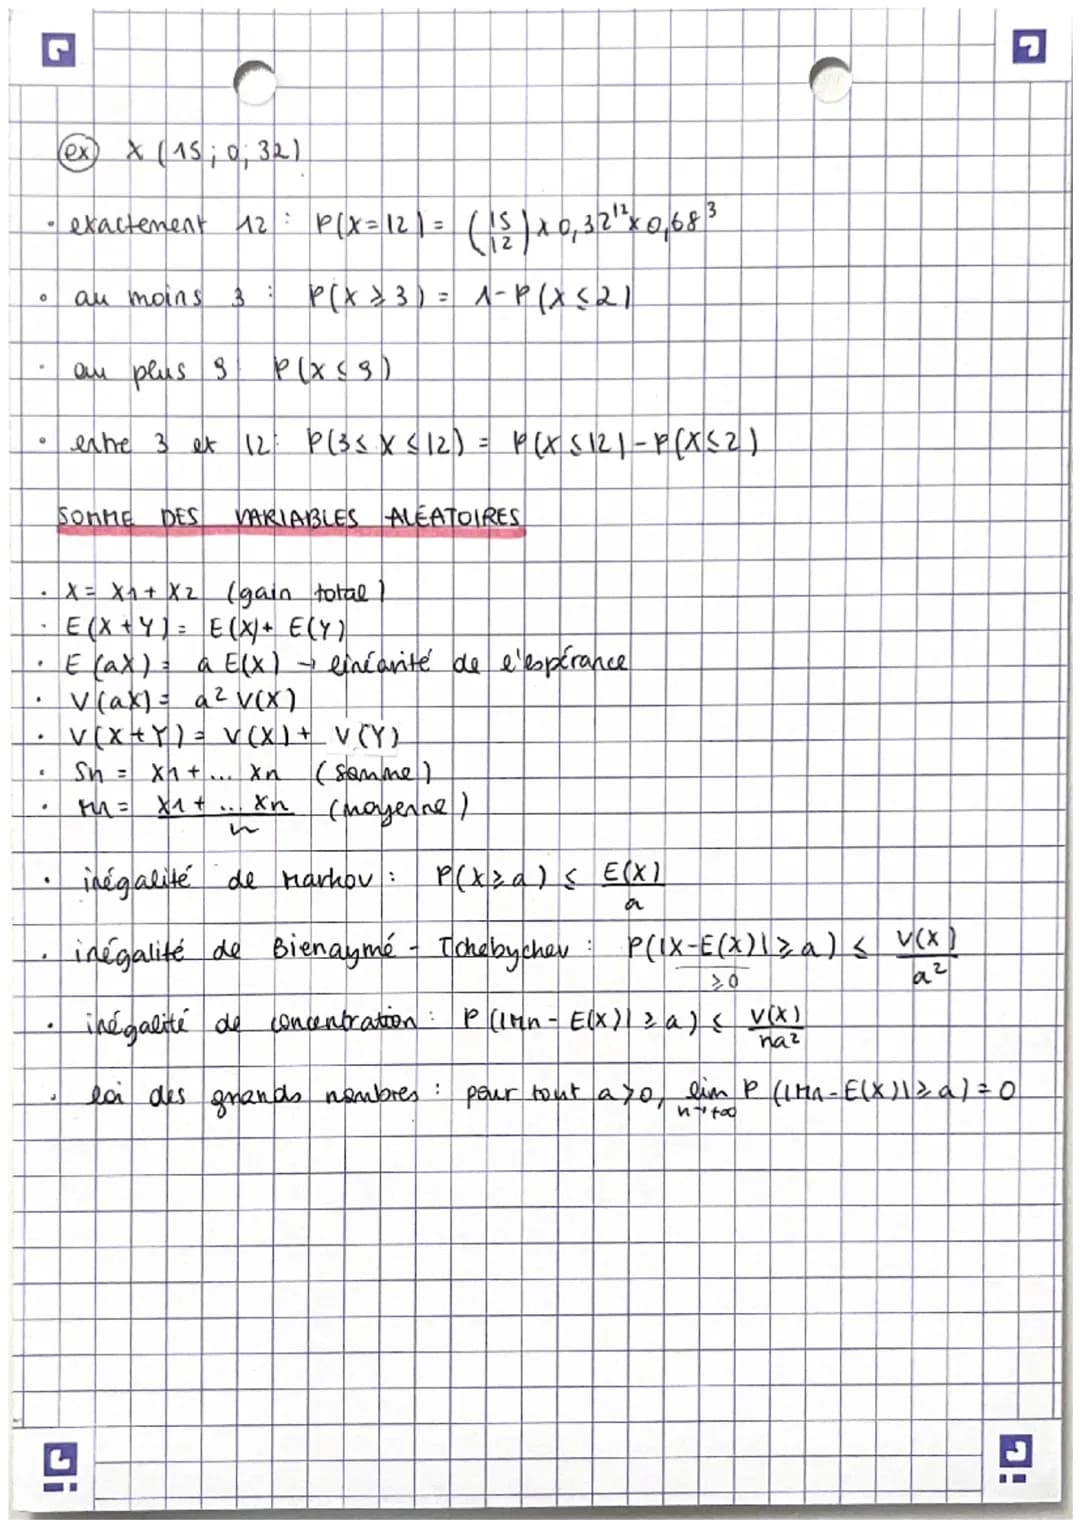 ex X (15; 0,32)
• exactement 12 : P(X=12) = (15 12) x 0,32^12 x 0,68^3
• au moins 3 : P(X ≥ 3) = 1-P(X ≤ 2)
• au plus 9 P(X ≤ 9)
• entre 3 et 12: P(3 ≤ X ≤ 12) = P(X ≤ 12) - P(X ≤ 2)
SOMME DES VARIABLES ALÉATOIRES
• X = X1 + X2 (gain total)
• E(X+Y) = E(X) + E(Y)
• E(aX) = a E(X) → linéarité de l'espérance
• V(aX) = a² V(X)
• V(X+Y) = V(X) + V(Y)
• Sn = X1 + ... Xn (somme)
• Mn = X1 + ... Xn / n (moyenne)
• inégalité de Markov : P(X ≥ a) ≤ E(X) / a
• inégalité de Bienaymé - Tchebychev : P(|X-E(X)| ≥ a) ≤ V(X) / a²
≥ 0
• inégalité de concentration : P(|Mn - E(X)| ≥ a) ≤ V(X) / na²
• loi des grands nombres : pour tout a>0, lim n→+∞ P(|Mn-E(X)| ≥ a) = 0